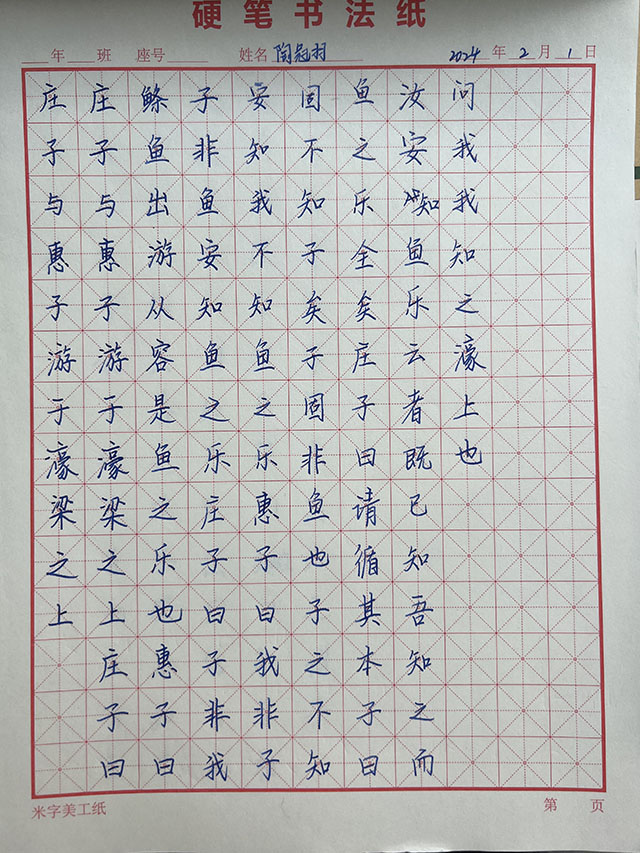 硬笔书法纸
年 班 座号 姓名 陶冠羽 2024 年 2 月 1 日
庄子与惠子游于濠梁之上
庄子与惠子游于濠梁之上庄子曰
鲦鱼出游从容是鱼之乐也惠子曰
子非鱼安知鱼之乐庄子曰子非我
安知我不知鱼之乐惠子曰我非子
固不知子矣子固非鱼也子之不知
鱼之乐全矣庄子曰请循其本子曰
汝安知鱼乐云者既已知吾知之而
问我我知之濠上也
米字美工纸 第 页